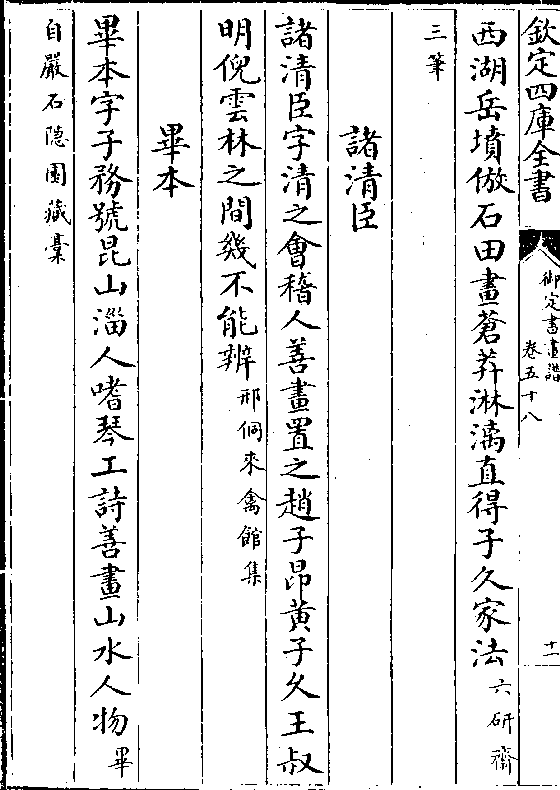 欽定四庫全書
御定書畫譜
卷五十八
十一
西湖岳墳倣石田畫蒼莽淋漓直得子久家法六研齋
三筆
諸清臣
諸清臣字清之會稽人善畫置之趙子昂黃子久王叔
明倪雲林之間幾不能辨邢侗來禽館集
畢本
畢本字子務號昆山淄人嗜琴工詩善畫山水人物畢
自嚴石隱園藏稾